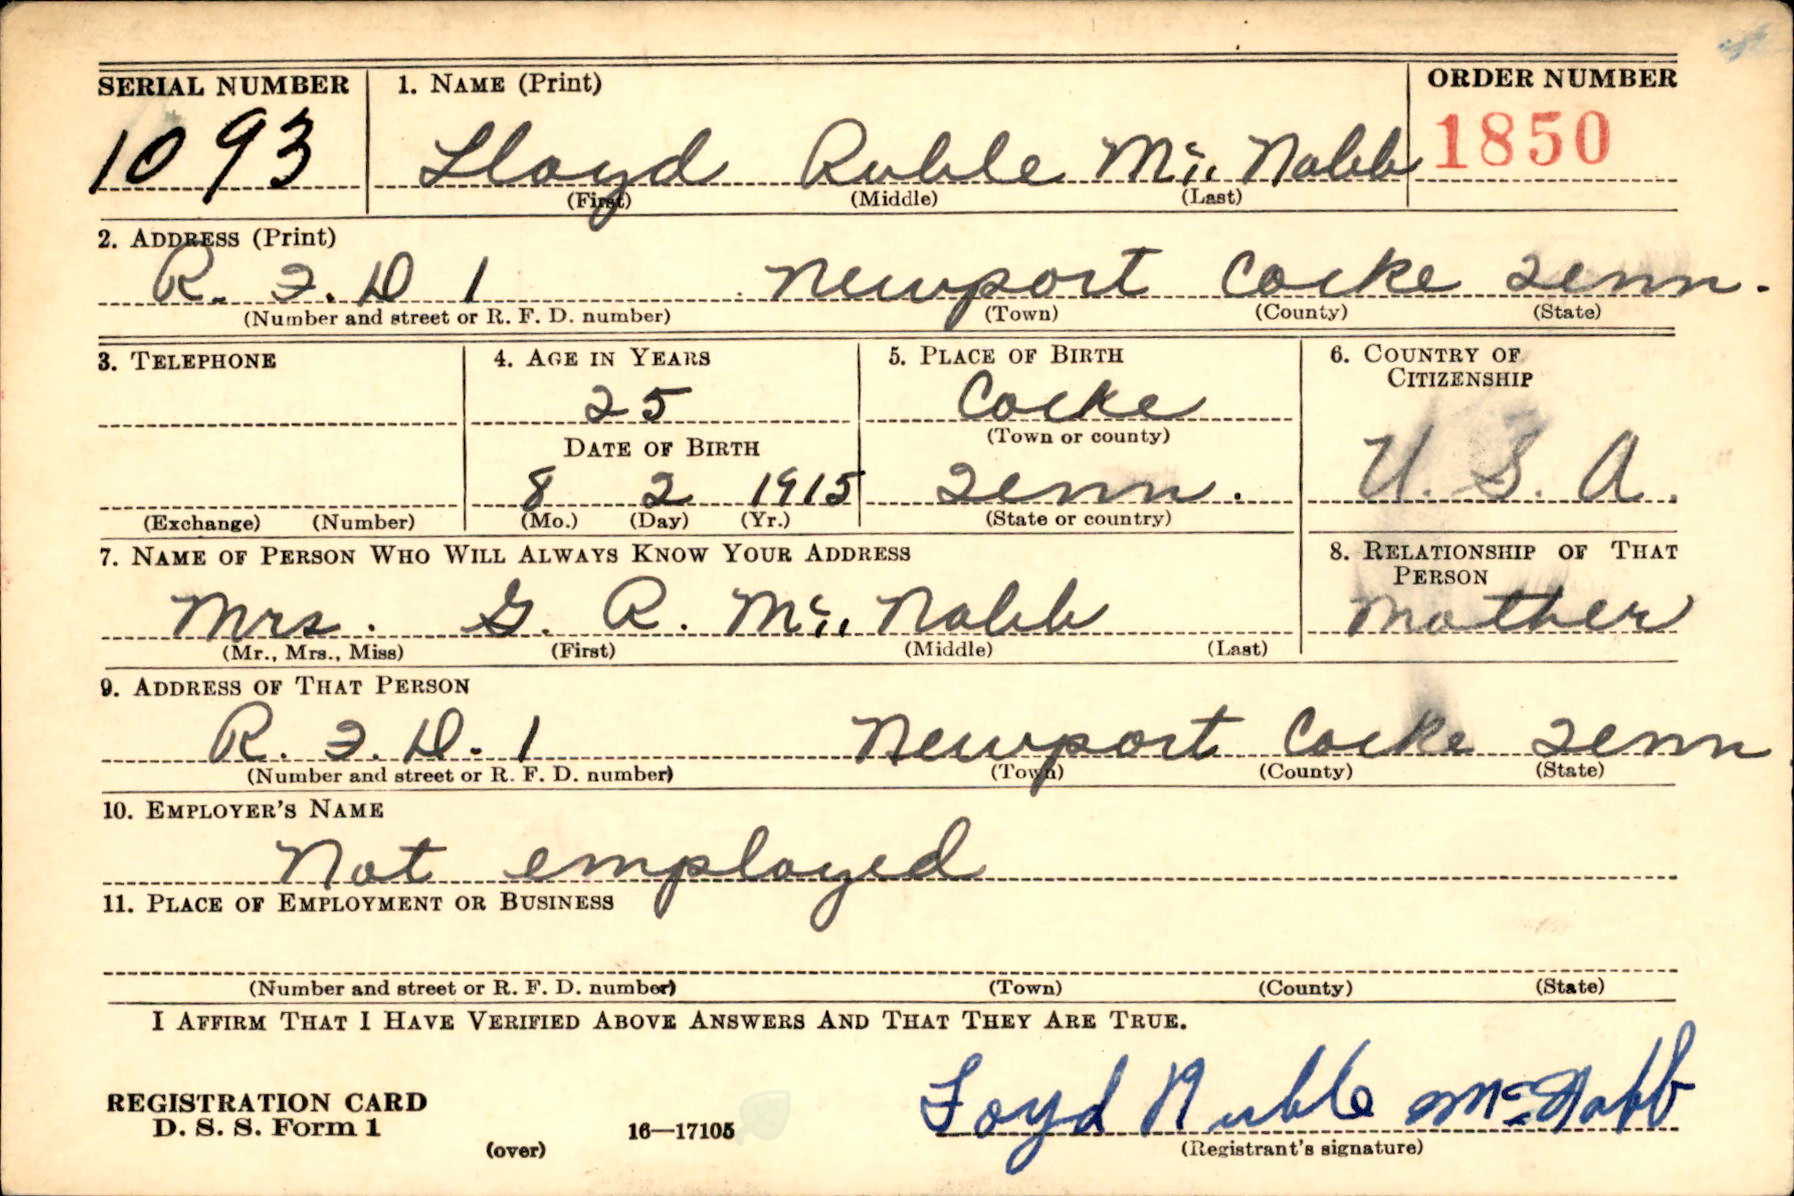 SERIAL NUMBER 1. NAME (Print) ORDER NUMBER
1093 Lloyd Ruble Mc. Nabb 1850
(First) (Middle) (Last)
2. ADDRESS (Print)
R. F. D 1 Newport Cocke Tenn.
(Number and street or R. F. D. number) (Town) (County) (State)
3. TELEPHONE 4. AGE IN YEARS 5. PLACE OF BIRTH 6. COUNTRY OF
CITIZENSHIP
25 Cocke
DATE OF BIRTH (Town or county)
8 2 1915 Tenn. U. S. A.
(Exchange) (Number) (Mo.) (Day) (Yr.) (State or country)
7. NAME OF PERSON WHO WILL ALWAYS KNOW YOUR ADDRESS 8. RELATIONSHIP OF THAT
PERSON
Mrs. G. R. Mc. Nabb Mother
(Mr., Mrs., Miss) (First) (Middle) (Last)
9. ADDRESS OF THAT PERSON
R. F. D. 1 Newport Cocke Tenn
(Number and street or R. F. D. number) (Town) (County) (State)
10. EMPLOYER'S NAME
Not employed
11. PLACE OF EMPLOYMENT OR BUSINESS
(Number and street or R. F. D. number) (Town) (County) (State)
I AFFIRM THAT I HAVE VERIFIED ABOVE ANSWERS AND THAT THEY ARE TRUE.
Loyd Ruble McNabb
REGISTRATION CARD
D. S. S. Form 1 16—17105
(over) (Registrant's signature)